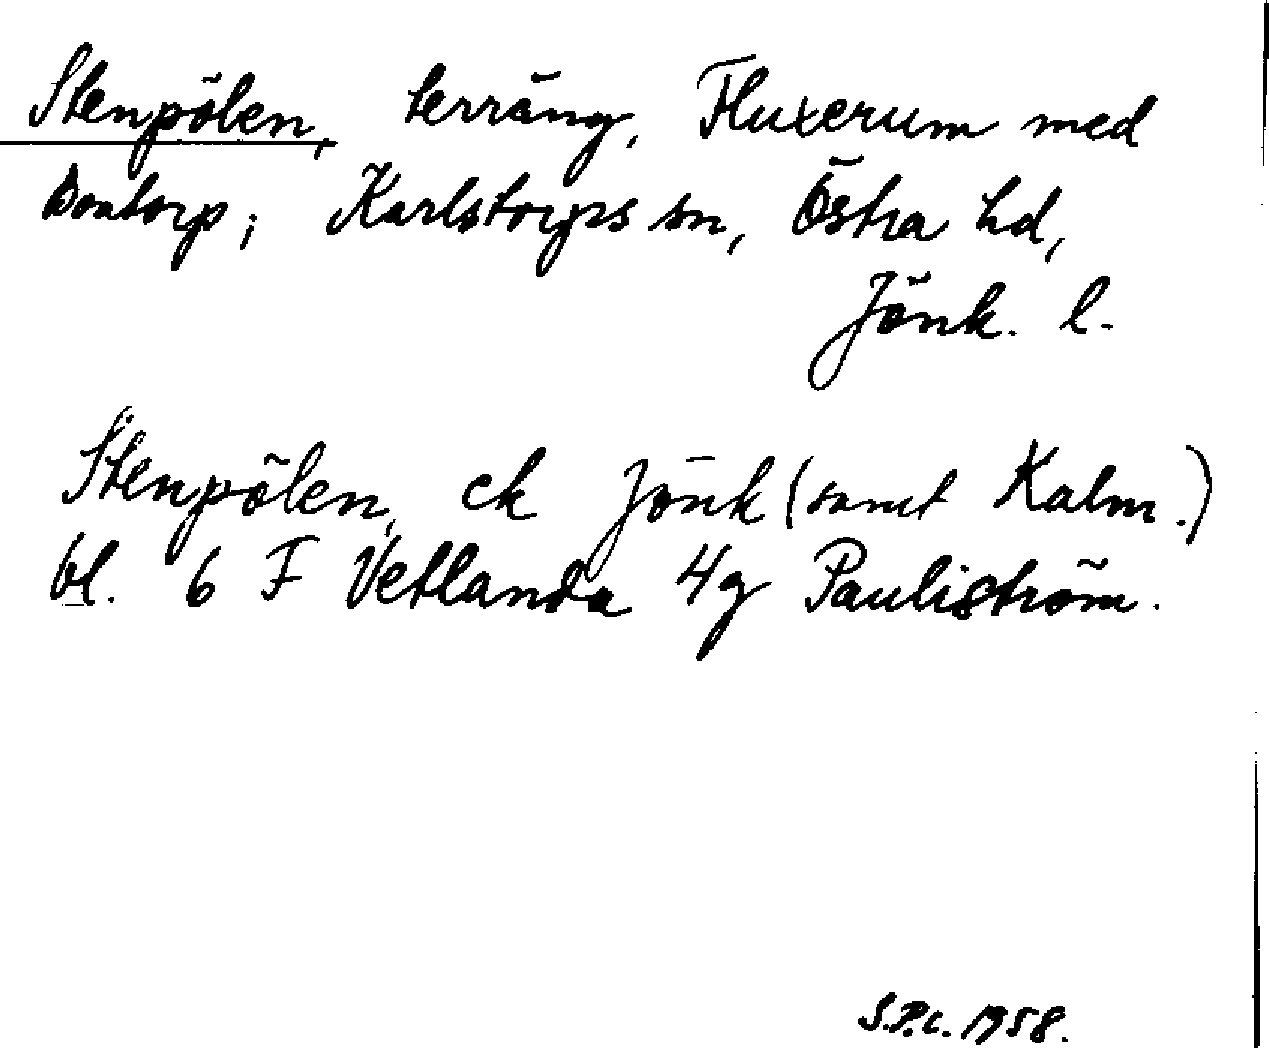 Stenpölen, terräng, Fluxerum med
Boatorp; Karlstorps sn, Östra hd,
Jönk. l.
Stenpölen, ek Jönk (samt Kalm.)
bl. 6 F Vetlanda 4g Pauliström.
S.P.C. 1958.